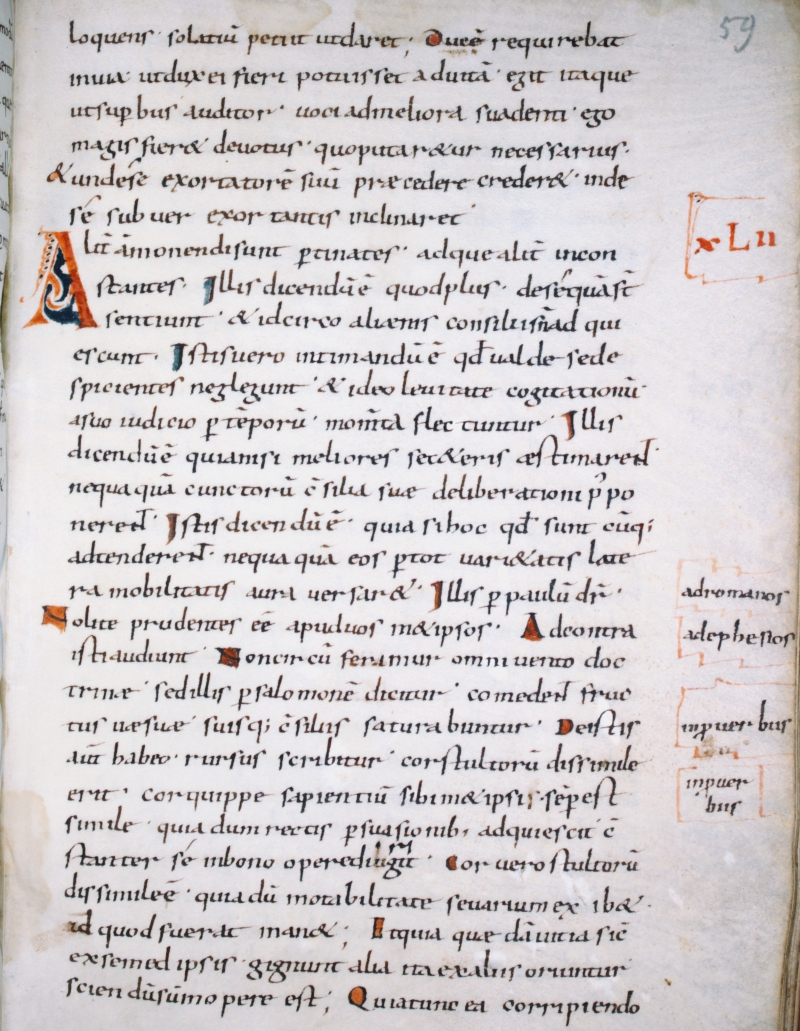 59
loquens · solatiū petiit ut daret ; Ducē requirebat
in uia · ut dux ei fieri potuisset ad uitā · egit itaque
ut sup̱bus auditor · uoci ad meliora suadenti · ego
magis fier& deuotus · quo putar&ur necessarius ·
& unde se exortatorē suū præcedere creder& · inde
se sub uer exortantis inclinaret
xLii
Alit̄ āmonendi sunt p̱tinates · adque alit̄ incon
stantes · Illis dicendū ē quod plus · de se quā st̄
sentiunt · & idcirco alienis consiliis n̄ ad qui
escunt · Istis uero intimandū ē qđ ualde se de
spicientes neglegunt · & ideo leuitate cogitationū
a suo iudicio p̱ tēporū · momt̄a flectuntur · Illis
dicendū ē quia nisi meliores se c&eris æstimareNT
nequaquā cunctorū c̄silia suæ deliberationi p̄po
nereNT · Istis dicendū ē · quia si hoc qđ sunt cūq;
adtendereNT · nequaquā eos p̱ tot uari&atis late
ra mobilitatis aura uersar& · Illis p̱ paulū dr̄ ·
ad romanos
Nolite prudentes eē apud uos m&ipsos · At econtra
ad ephesios
isti audiunt · Non circū feramur omni uento doc
trinæ · sed illis p̱ salomonē dicitur · comedeNT fruc
in puerbus
tus uiæ suæ · suisq; c̄siliis saturabuntur · De istis
aut̄ habeo · rursus scribitur · cor stultorū dissimile
in puer
bus
erit · cor quippe sapientiū sibi m&ipsi · semp̱ est
simile · quia dum rectis p̱suasionib; adquiescit c̄
stanter se in bono opere dirigit · Cor uero stultorū
dissimile ē · quia dū motabilitate se uarium exib& ·
id quod fuerat man& ; Et quia quædā uitia sic̄
ex sem& ipsis gignunt alia ita ex aliis oriuntur
sciendū sūmopere est ; Quia tunc ea corripiendo